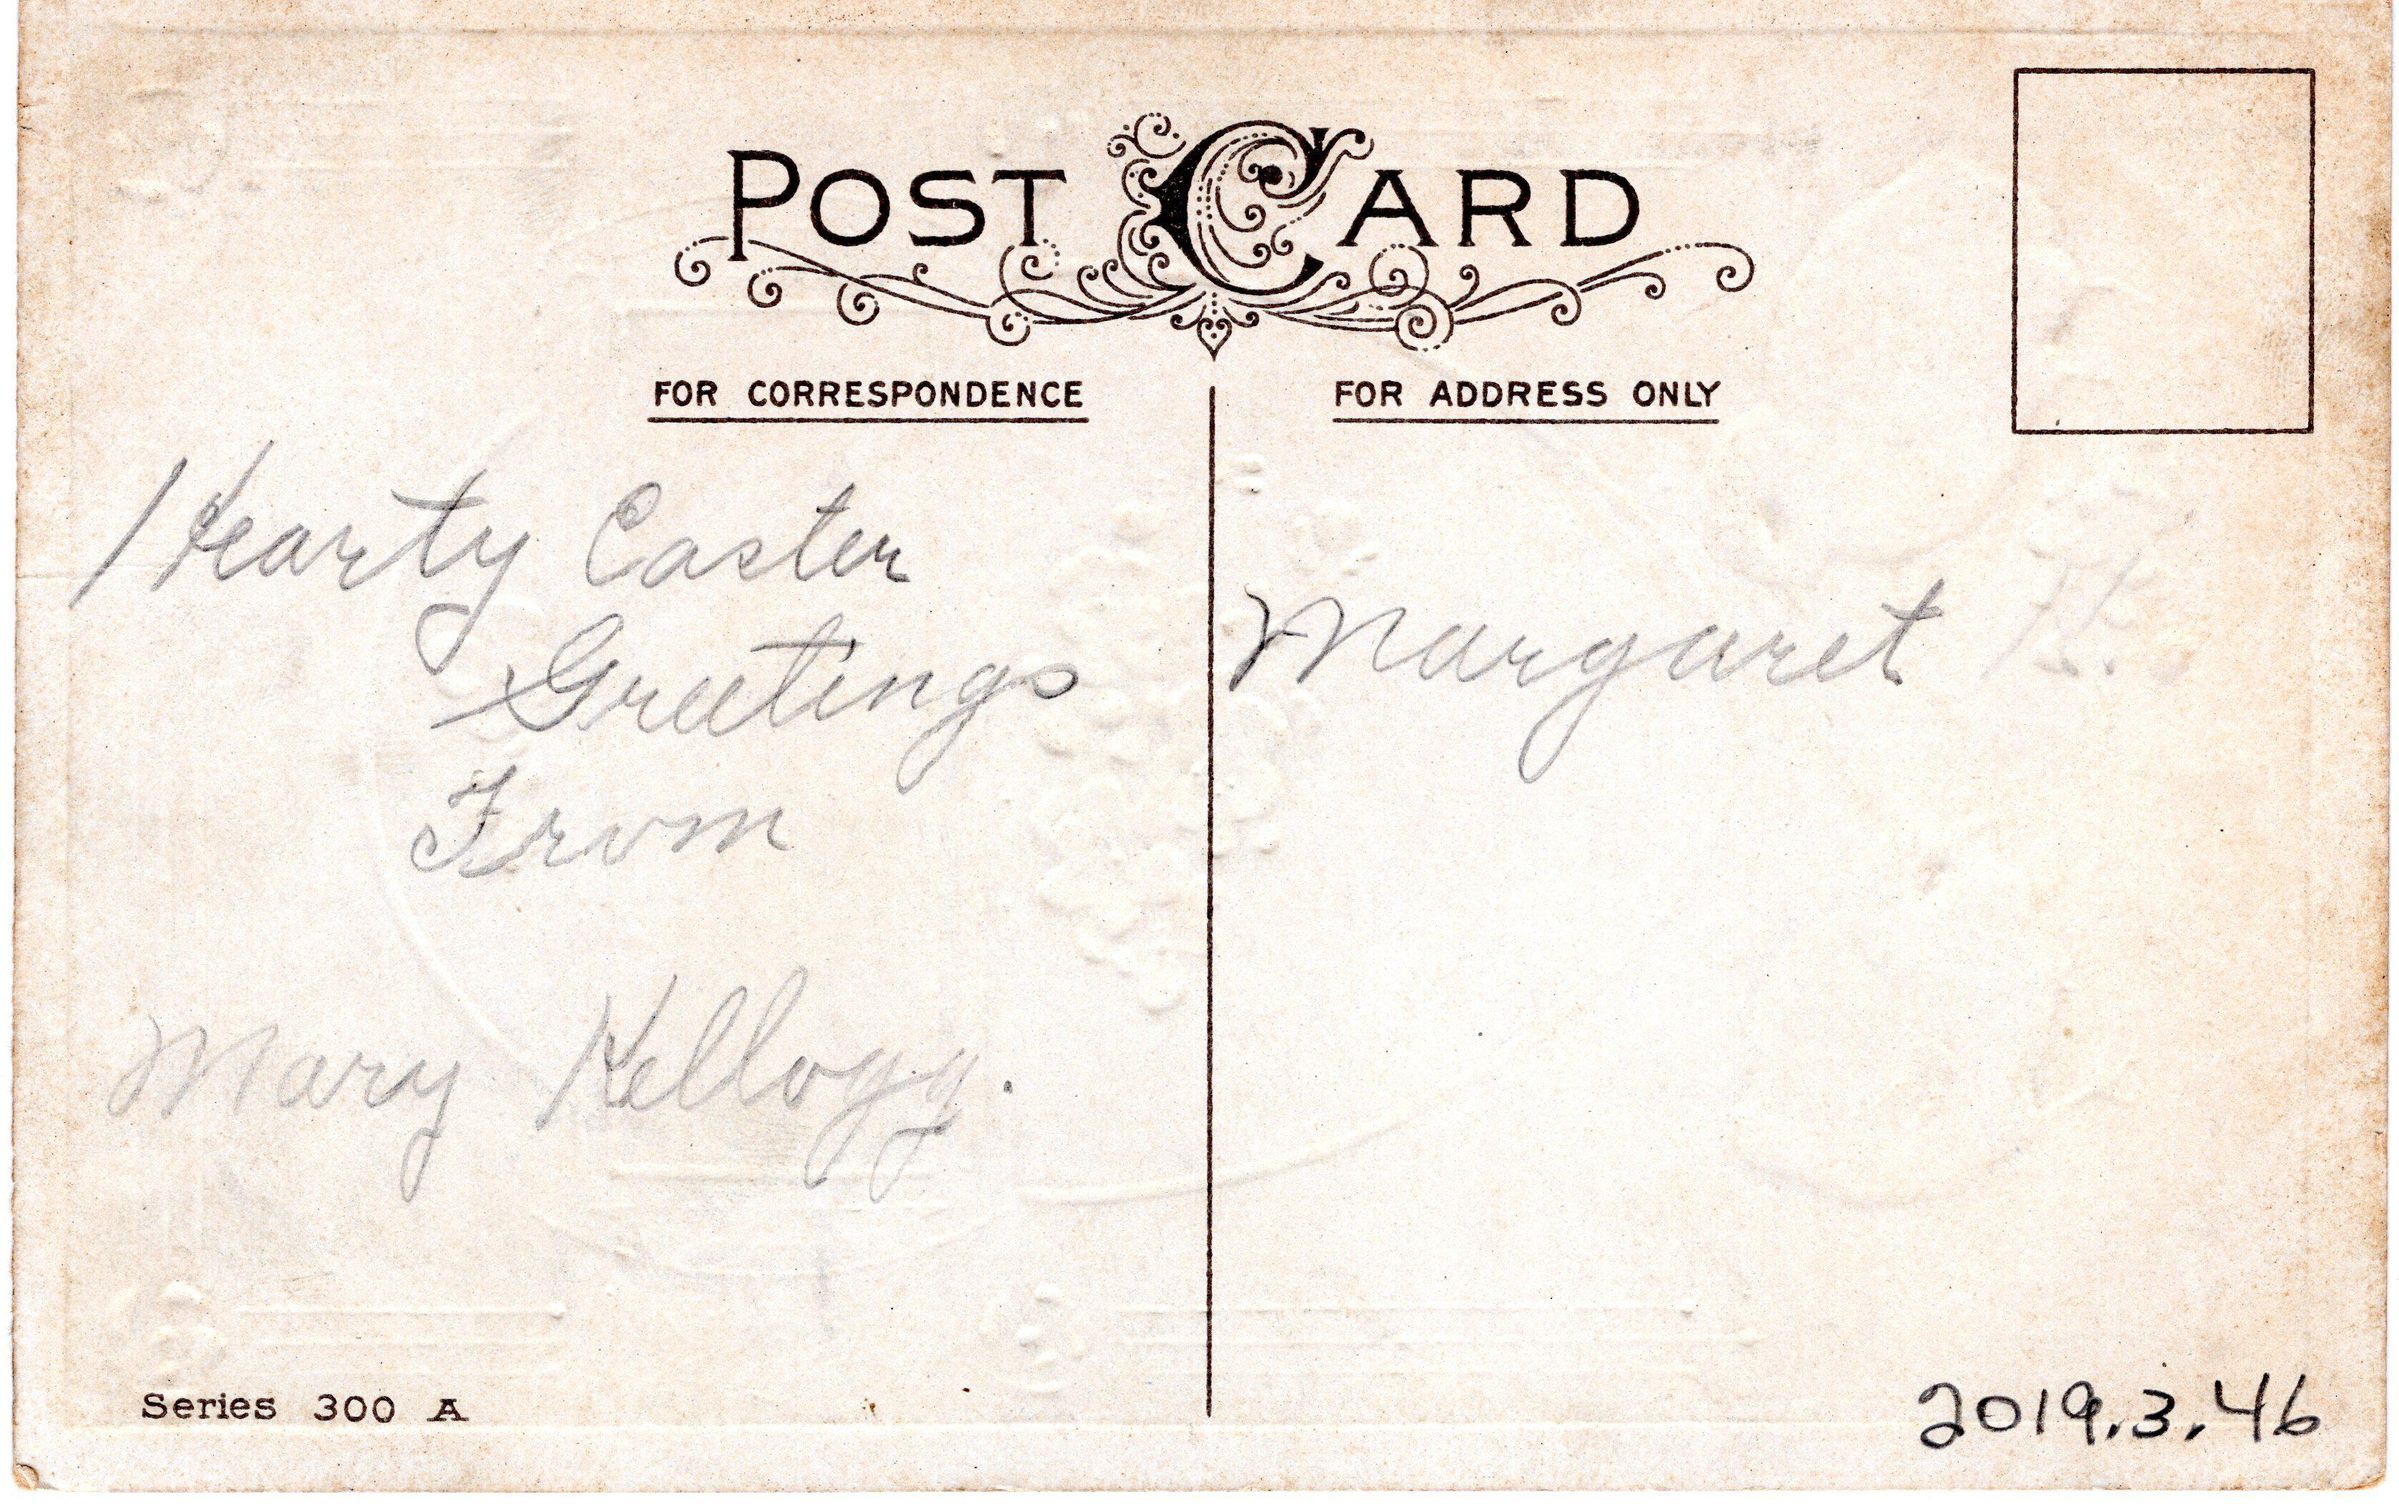 POST CARD
FOR CORRESPONDENCE
FOR ADDRESS ONLY
Hearty Easter
Greetings
From
Mary Kellogg.
Margaret
Series 300 A
2019.3.46